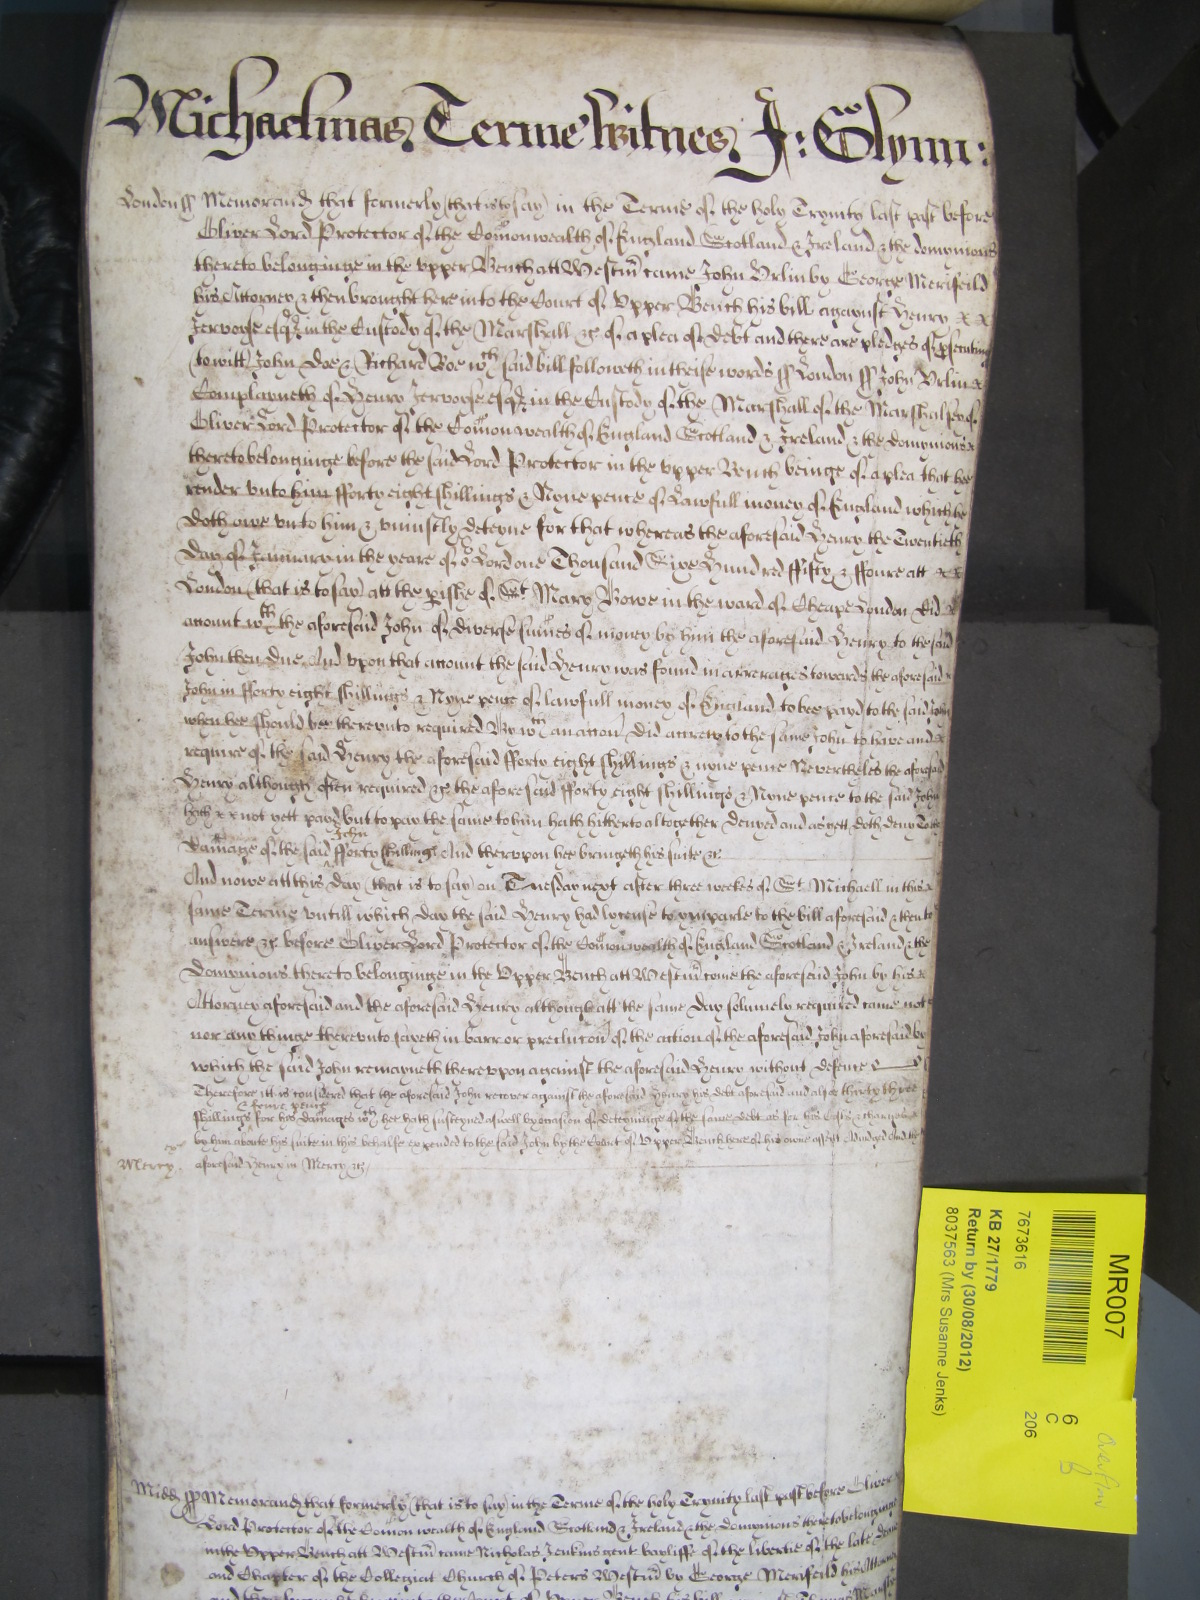 Michaelmas Terme Witnes J: Glynn:
London ss Memorand that formerly (that is to say) in the Terme of the holy Trynity last past before
Oliver Lord Protector of the Comonwealth of England Scotland & Ireland & the domynions
thereto belonginge in the Upper Bench att Westm came John Urlin by George Merifeild
his Attorney & then brought here into the Court of Upper Bench his bill against Henry x x
Jervoyse esqr in the Custody of the Marshall &c of a plea of Debt and there are pledges of psecuting
(to witt) John Doe & Richard Roe wch said bill followeth in theise words ss London ss John Urlin x
Complayneth of Henry Jervoyse esqr in the Custody of the Marshall of the Marshalsey of
Oliver Lord Protector of the Comonwealth of England Scotland & Ireland & the domynions
thereto belonginge before the said Lord Protector in the Upper Bench beinge of a plea that hee
render unto him fforty eight shillings & Nyne pence of Lawfull money of England which he
doth owe unto him & uniustly deteyne for that whereas the aforesaid Henry the Twentieth
day of January in the yeare of or Lord one Thousand Sixe Hundred ffifty & ffoure att x x
London (that is to say) att the pishe of St Mary Bowe in the ward of Cheape London Did
account wth the aforesaid John of diverse sumes of money by him the aforesaid Henry to the said
John then due And upon that account the said Henry was found in arrerages towards the aforesaid
John in fforty eight shillings & Nyne pence of lawfull money of England to bee payd to the said John
when hee should bee thereunto required By wch an accon did accrew to the same John to have and x
require of the said Henry the aforesaid fforty eight shillings & nyne pence Nevertheles the aforesaid
Henry although often required &c the aforesaid fforty eight shillings & Nyne pence to the said John
hath x x not yett payd but to pay the same to him hath hitherto altogether denyed and as yett doth deny To the
Damage of the said John fforty shillings And thereupon hee bringeth his suite &c
And nowe att this day (that is to say) on Tuesday next after three weekes of St Michaell in this x
same Terme untill which day the said Henry had lycense to imparle to the bill aforesaid & then to
answere &c before Oliver Lord Protector of the Comonwealth of England Scotland & Ireland & the
Domynions thereto belonginge in the Upper Bench att Westm come the aforesaid John by his x
Attorney aforesaid and the aforesaid Henry although att the same day solemnely required came not
nor any thinge thereunto sayeth in barr or preclucon of the action of the aforesaid John aforesaid by
which the said John remayneth thereupon against the aforesaid Henry without defence
Therefore itt is considered that the aforesaid John recover against the aforesaid Henry his debt aforesaid and alsoe thirty three
shillings & foure pence for his damages wch hee hath susteyned aswell by occasion of deteyninge of the same debt as for his Costs & charges
by him aboute his suite in this behalfe expended to the said John by the Court of Upper Bench here of his owne assent Adiudged And the
Mercy aforesaid Henry in Mercy &c
Midd ss Memorand that formerly (that is to say) in the Terme of the holy Trynity last past before Oliver
Lord Protector of the Comon wealth of England Scotland & Ireland & the domynions thereto belonginge
in the Upper Bench att Westm came Nicholas Jenkins gent bayliffe of the libertie of the late Deane
and Chapter of the Collegiat Church of Peters Westm by George Merifeild his Attorney
MR007
7673616
KB 27/1779
Return by (30/08/2012)
8037563 (Mrs Susanne Jenks)
6
C
206